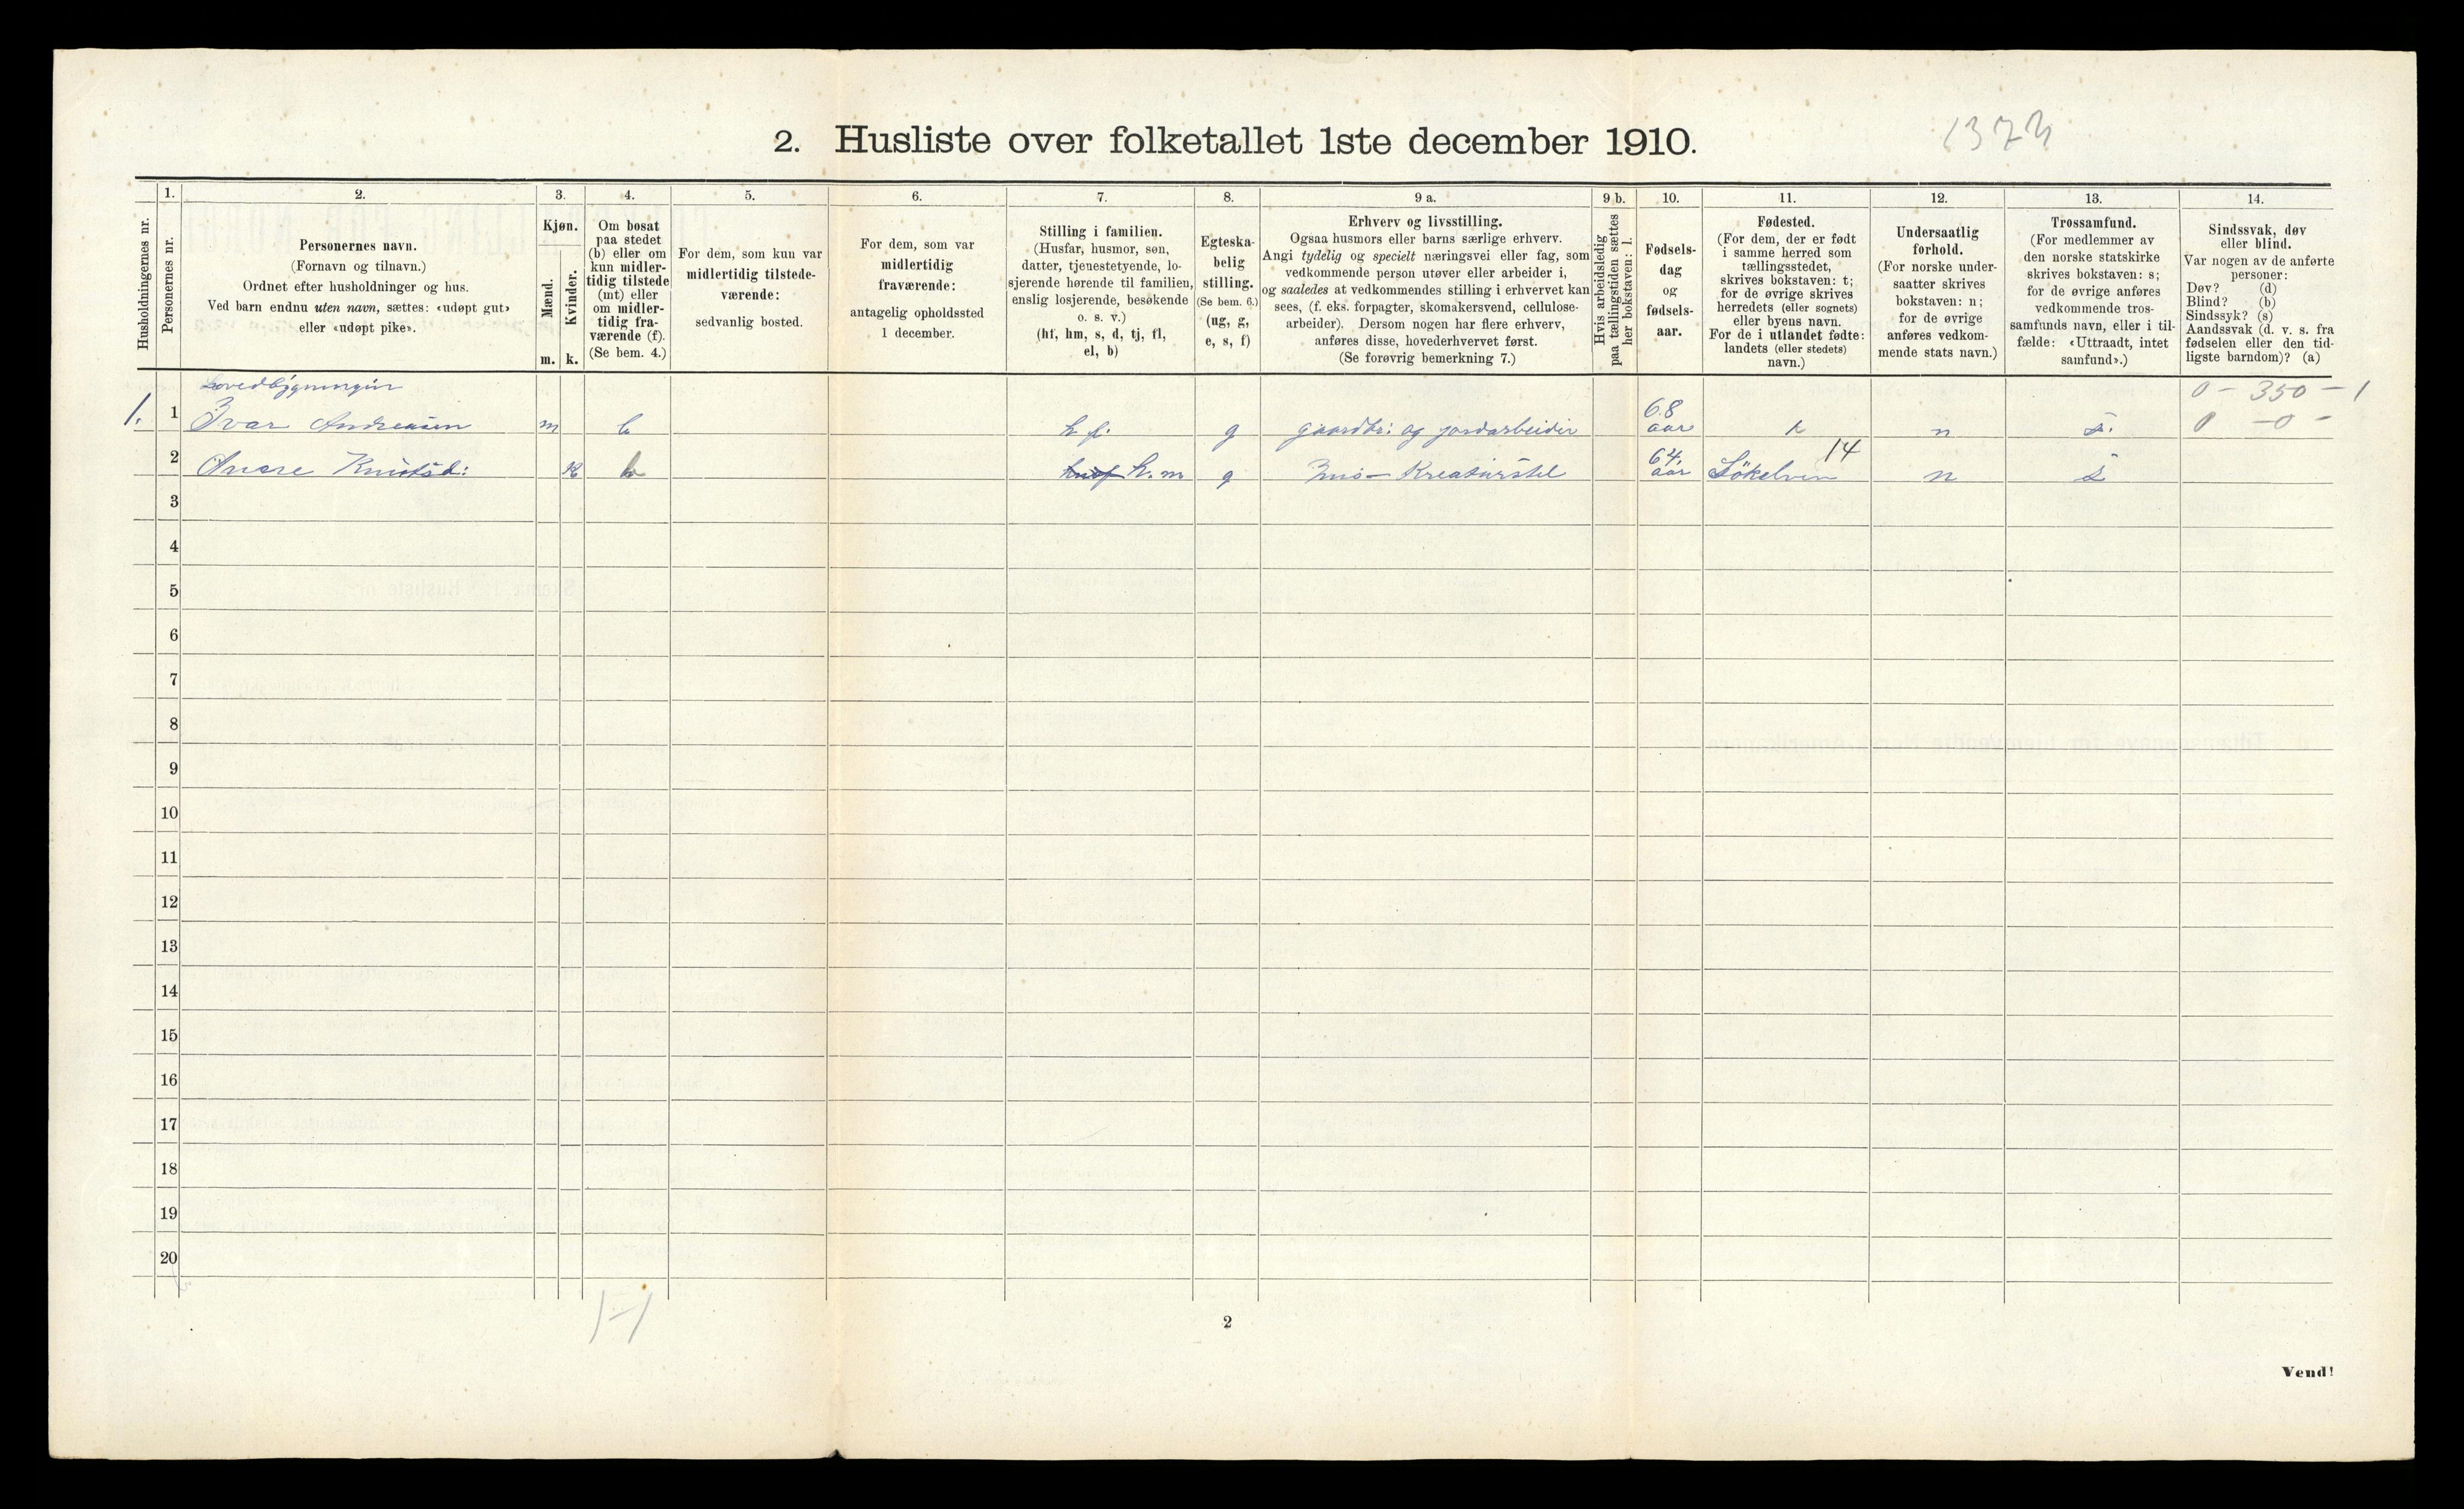 1373
2. Husliste over folketallet 1ste december 1910.
Husholdningernes nr.
1.
Personernes nr.
2.
Personernes navn.
(Fornavn og tilnavn.)
Ordnet efter husholdninger og hus.
Ved barn endnu uten navn, sættes: «udøpt gut»
eller «udøpt pike».
3.
Kjøn.
Mænd.
Kvinder.
m. k.
4.
Om bosat
paa stedet
(b) eller om
kun midler-
tidig tilstede
(mt) eller
om midler-
tidig fra-
værende (f).
(Se bem. 4.)
5.
For dem, som kun var
midlertidig tilstede-
værende:
sedvanlig bosted.
6.
For dem, som var
midlertidig
fraværende:
antagelig opholdssted
1 december.
7.
Stilling i familien.
(Husfar, husmor, søn,
datter, tjenestetyende, lo-
sjerende hørende til familien,
enslig losjerende, besøkende
o. s. v.)
(hf, hm, s, d, tj, fl,
el, b)
8.
Egteska-
belig
stilling.
(Se bem. 6.)
(ug, g,
e, s, f)
9 a.
Erhverv og livsstilling.
Ogsaa husmors eller barns særlige erhverv.
Angi tydelig og specielt næringsvei eller fag, som
vedkommende person utøver eller arbeider i,
og saaledes at vedkommendes stilling i erhvervet kan
sees, (f. eks. forpagter, skomakersvend, cellulose-
arbeider). Dersom nogen har flere erhverv,
anføres disse, hovederhvervet først.
(Se forøvrig bemerkning 7.)
9 b.
Hvis arbeidsledig
paa tællingstiden sættes
her bokstaven: l.
10.
Fødsels-
dag
og
fødsels-
aar.
11.
Fødested.
(For dem, der er født
i samme herred som
tællingsstedet,
skrives bokstaven: t;
for de øvrige skrives
herredets (eller sognets)
eller byens navn.
For de i utlandet fødte:
landets (eller stedets)
navn.)
12.
Undersaatlig
forhold.
(For norske under-
saatter skrives
bokstaven: n;
for de øvrige
anføres vedkom-
mende stats navn.)
13.
Trossamfund.
(For medlemmer av
den norske statskirke
skrives bokstaven: s;
for de øvrige anføres
vedkommende tros-
samfunds navn, eller i til-
fælde: «Uttraadt, intet
samfund».)
14.
Sindssvak, døv
eller blind.
Var nogen av de anførte
personer:
Døv? (d)
Blind? (b)
Sindssyk? (s)
Aandssvak (d. v. s. fra
fødselen eller den tid-
ligste barndom)? (a)
0 - 350 - 1
0 - 0 -
1. 1 Ivar Andreasen m b h f. g gaardbr: og jordarbeider 68 aar n s.
2 k b h. m g Kreaturstel 64 aar 14 n s
3
4
5
6
7
8
9
10
11
12
13
14
15
16
17
18
19
20
1-1
2
Vend!